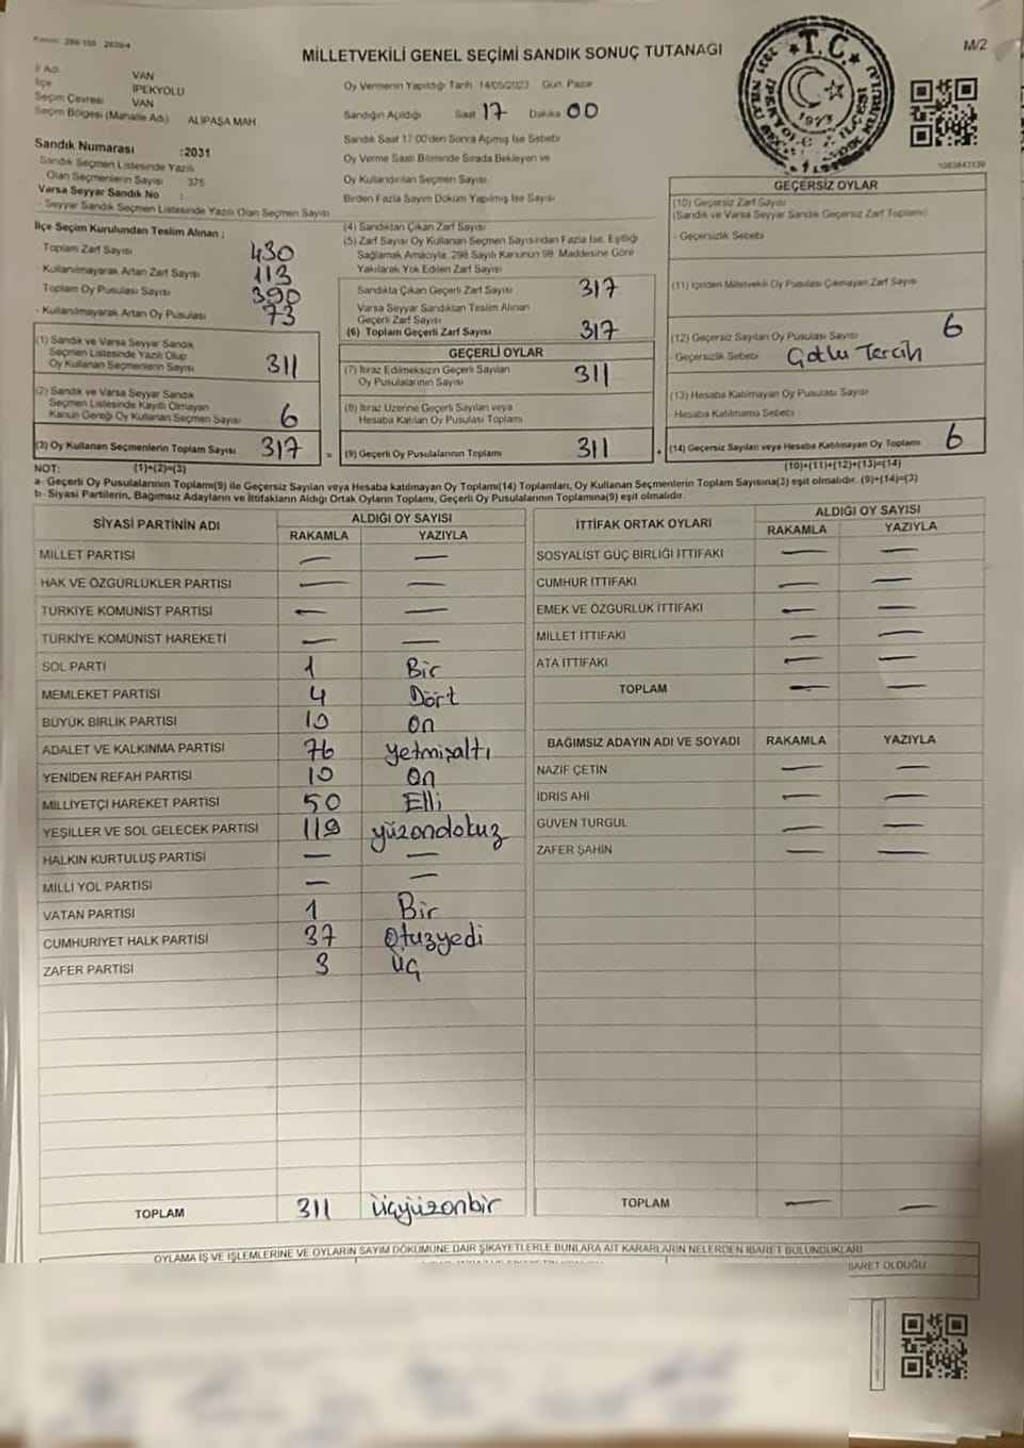 MİLLETVEKİLİ GENEL SEÇİMİ SANDIK SONUÇ TUTANAGI
M/2
T.C.
İPEKYOLU
İLÇESİ
1973
İl Adı VAN
İlçe İPEKYOLU
Seçim Çevresi VAN
Seçim Bölgesi (Mahalle Adı) ALIPAŞA MAH
Sandık Numarası :2031
Sandık Seçmen Listesinde Yazılı
Olan Seçmenlerin Sayısı 375
Varsa Seyyar Sandık No :
- Seyyar Sandık Seçmen Listesinde Yazılı Olan Seçmen Sayısı
Oy Vermenin Yapıldığı Tarih 14/05/2023 Gün Pazar
Sandığın Açıldığı Saat 17 Dakika 00
Sandık Saat 17:00'den Sonra Açılmış İse Sebebi
Oy Verme Saati Bitiminde Sırada Bekleyen ve
Oy Kullandırılan Seçmen Sayısı
Birden Fazla Sayım Döküm Yapılmış İse Sayısı
İlçe Seçim Kurulundan Teslim Alınan ;
Toplam Zarf Sayısı 430
- Kullanılmayarak Artan Zarf Sayısı 113
Toplam Oy Pusulası Sayısı 390
- Kullanılmayarak Artan Oy Pusulası 73
(1) Sandık ve Varsa Seyyar Sandık
Seçmen Listesinde Yazılı Olup
Oy Kullanan Seçmenlerin Sayısı 311
(2) Sandık ve Varsa Seyyar Sandık
Seçmen Listesinde Kayıtlı Olmayan
Kanun Gereği Oy Kullanan Seçmen Sayısı 6
(3) Oy Kullanan Seçmenlerin Toplam Sayısı 317
(1)+(2)=(3)
(4) Sandıktan Çıkan Zarf Sayısı
(5) Zarf Sayısı Oy Kullanan Seçmen Sayısından Fazla İse, Eşitliği
Sağlamak Amacıyla, 298 Sayılı Kanunun 98. Maddesine Göre
Yakılarak Yok Edilen Zarf Sayısı
Sandıkta Çıkan Geçerli Zarf Sayısı 317
Varsa Seyyar Sandıktan Teslim Alınan
Geçerli Zarf Sayısı
(6) Toplam Geçerli Zarf Sayısı 317
GEÇERLİ OYLAR
(7) İtiraz Edilmeksizin Geçerli Sayılan
Oy Pusulalarının Sayısı 311
(8) İtiraz Üzerine Geçerli Sayılan veya
Hesaba Katılan Oy Pusulası Toplamı
= (9) Geçerli Oy Pusulalarının Toplamı 311
GEÇERSİZ OYLAR
(10) Geçersiz Zarf Sayısı
(Sandık ve Varsa Seyyar Sandık Geçersiz Zarf Toplamı)
- Geçersizlik Sebebi
(11) İçinden Milletvekili Oy Pusulası Çıkmayan Zarf Sayısı
(12) Geçersiz Sayılan Oy Pusulası Sayısı 6
- Geçersizlik Sebebi Çotlu Tercih
(13) Hesaba Katılmayan Oy Pusulası Sayısı
Hesaba Katılmama Sebebi
+ (14) Geçersiz Sayılan veya Hesaba Katılmayan Oy Toplamı 6
(10)+(11)+(12)+(13)=(14)
NOT:
a- Geçerli Oy Pusulalarının Toplamı(9) ile Geçersiz Sayılan veya Hesaba katılmayan Oy Toplamı(14) Toplamları, Oy Kullanan Seçmenlerin Toplam Sayısına(3) eşit olmalıdır. (9)+(14)=(3)
b- Siyasi Partilerin, Bağımsız Adayların ve İttifakların Aldığı Ortak Oyların Toplamı, Geçerli Oy Pusulalarının Toplamına(9) eşit olmalıdır.
SİYASİ PARTİNİN ADI ALDIĞI OY SAYISI
RAKAMLA YAZIYLA
MİLLET PARTİSİ — —
HAK VE ÖZGÜRLÜKLER PARTİSİ — —
TÜRKİYE KOMÜNİST PARTİSİ — —
TÜRKİYE KOMÜNİST HAREKETİ — —
SOL PARTİ 1 Bir
MEMLEKET PARTİSİ 4 Dört
BÜYÜK BİRLİK PARTİSİ 10 On
ADALET VE KALKINMA PARTİSİ 76 yetmişaltı
YENİDEN REFAH PARTİSİ 10 On
MİLLİYETÇİ HAREKET PARTİSİ 50 Elli
YEŞİLLER VE SOL GELECEK PARTİSİ 119 yüzondokuz
HALKIN KURTULUŞ PARTİSİ — —
MİLLİ YOL PARTİSİ — —
VATAN PARTİSİ 1 Bir
CUMHURİYET HALK PARTİSİ 37 Otuzyedi
ZAFER PARTİSİ 3 üç
TOPLAM 311 üçyüzonbir
İTTİFAK ORTAK OYLARI ALDIĞI OY SAYISI
RAKAMLA YAZIYLA
SOSYALİST GÜÇ BİRLİĞİ İTTİFAKI — —
CUMHUR İTTİFAKI — —
EMEK VE ÖZGÜRLÜK İTTİFAKI — —
MİLLET İTTİFAKI — —
ATA İTTİFAKI — —
TOPLAM — —
BAĞIMSIZ ADAYIN ADI VE SOYADI RAKAMLA YAZIYLA
NAZİF ÇETİN — —
İDRİS AHİ — —
GÜVEN TURGUL — —
ZAFER ŞAHİN — —
TOPLAM — —
OYLAMA İŞ VE İŞLEMLERİNE VE OYLARIN SAYIM DÖKÜMÜNE DAİR ŞİKAYETLERLE BUNLARA AİT KARARLARIN NELERDEN İBARET BULUNDUKLARI
İBARET OLDUĞU